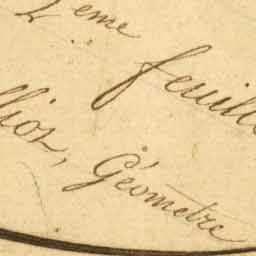 2 eme
feuille
lioz, Géometre